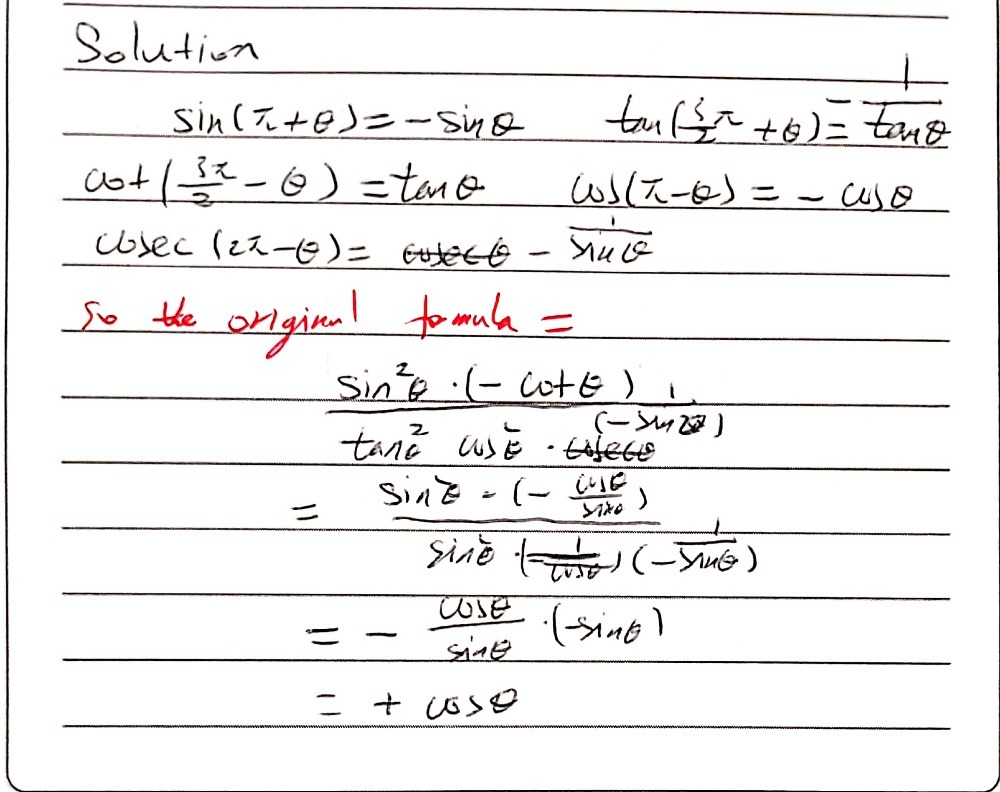 Solution
sin(π+θ)=-sinθ tan(3/2π+θ)=-1/tanθ
cot(3π/2-θ)=tanθ cos(π-θ)=-cosθ
cosec(2π-θ)= -1/sinθ
So the original formula =
sin²θ·(-cotθ)
tan²θ cos²θ· 1/(-sinθ)
= sin²θ-(-cosθ/sinθ)
sin²θ· (-1/sinθ)
= - cosθ/sinθ·(-sinθ)
= + cosθ